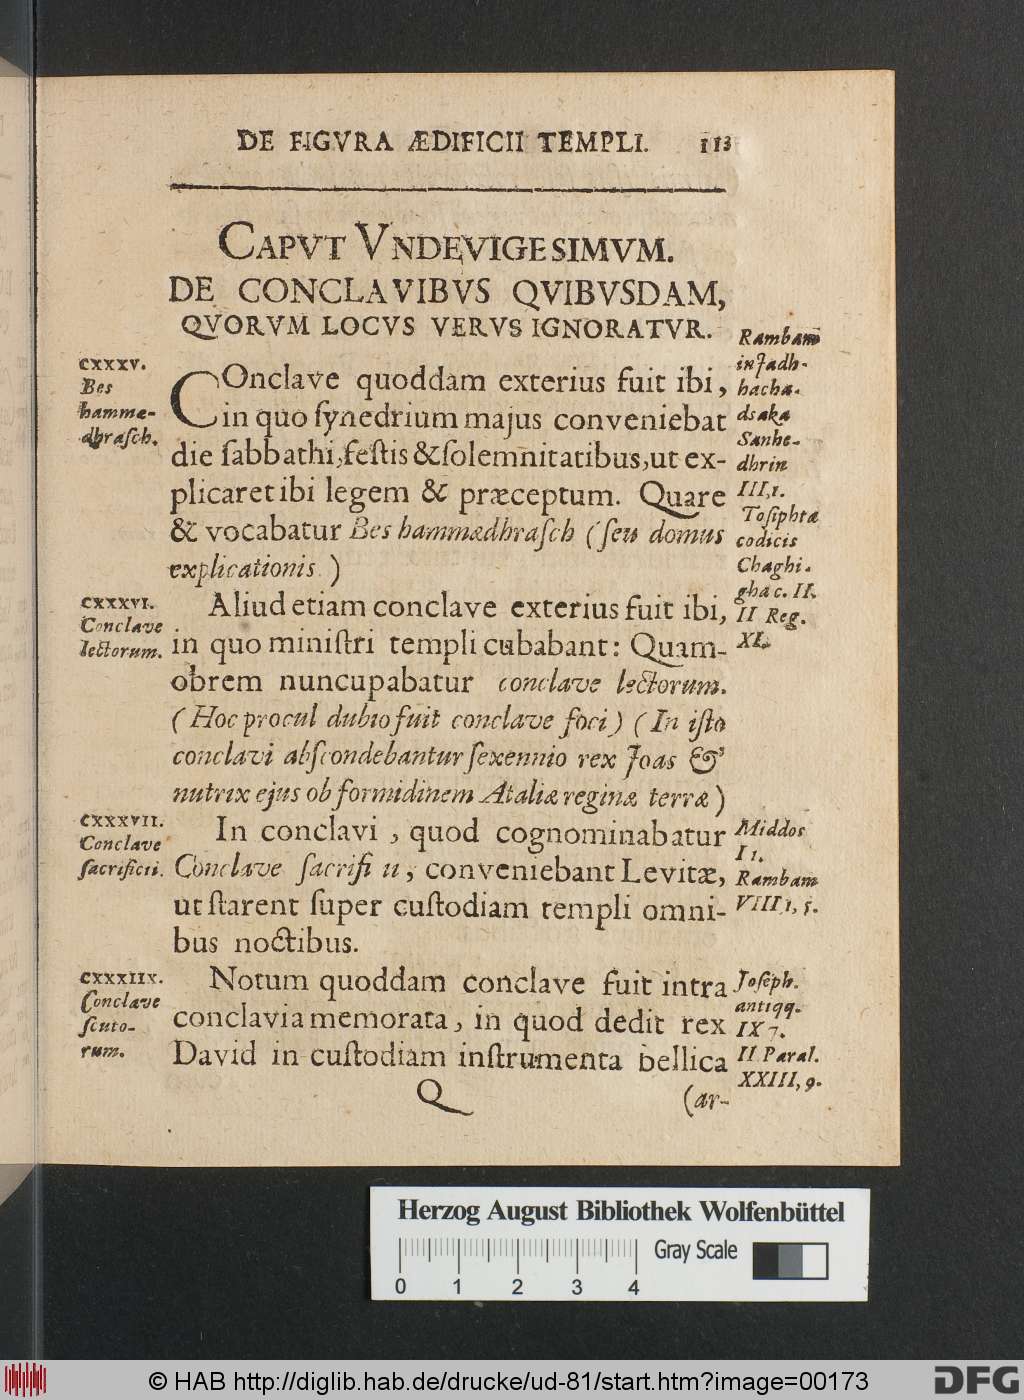 DE FIGVRA ÆDIFICII TEMPLI. 113
CAPVT VNDEVIGESIMVM.
DE CONCLAVIBVS QVIBVSDAM,
QVORVM LOCVS VERVS IGNORATVR.
COnclave quoddam exterius fuit ibi,
in quo ſynedrium majus conveniebat
die ſabbathi, feſtis & ſolemnitatibus, ut ex-
plicaret ibi legem & præceptum. Quare
& vocabatur Bes hammædhraſch (ſeu domus
explicationis.)
Aliud etiam conclave exterius fuit ibi,
in quo miniſtri templi cubabant: Quam-
obrem nuncupabatur conclave lectorum.
(Hoc procul dubio fuit conclave foci) (In iſto
conclavi abſcondebantur ſexennio rex Joas &
nutrix ejus ob formidinem Ataliæ reginæ terræ)
In conclavi, quod cognominabatur
Conclave ſacrifi ii, conveniebant Levitæ,
ut ſtarent ſuper cuſtodiam templi omni-
bus noctibus.
Notum quoddam conclave fuit intra
conclavia memorata, in quod dedit rex
David in cuſtodiam inſtrumenta bellica
Q (ar-
CXXXV.
Bes
hamme-
dhraſch.
CXXXVI.
Conclave
lectorum.
CXXXVII.
Conclave
ſacrificii.
CXXXIIX.
Conclave
ſcuto-
rum.
Rambam
in Jadh-
hacha-
dsaka
Sanhe-
dhrin
III, 1.
Toſiphta
codicis
Chaghi-
gha c. II.
II Reg.
XI.
Middos
I 1.
Rambam
VIII, 1, 5.
Joſeph.
antiqq.
IX 7.
II Paral.
XXIII, 9.
Herzog August Bibliothek Wolfenbüttel
Gray Scale
0 1 2 3 4
© HAB http://diglib.hab.de/drucke/ud-81/start.htm?image=00173
DFG